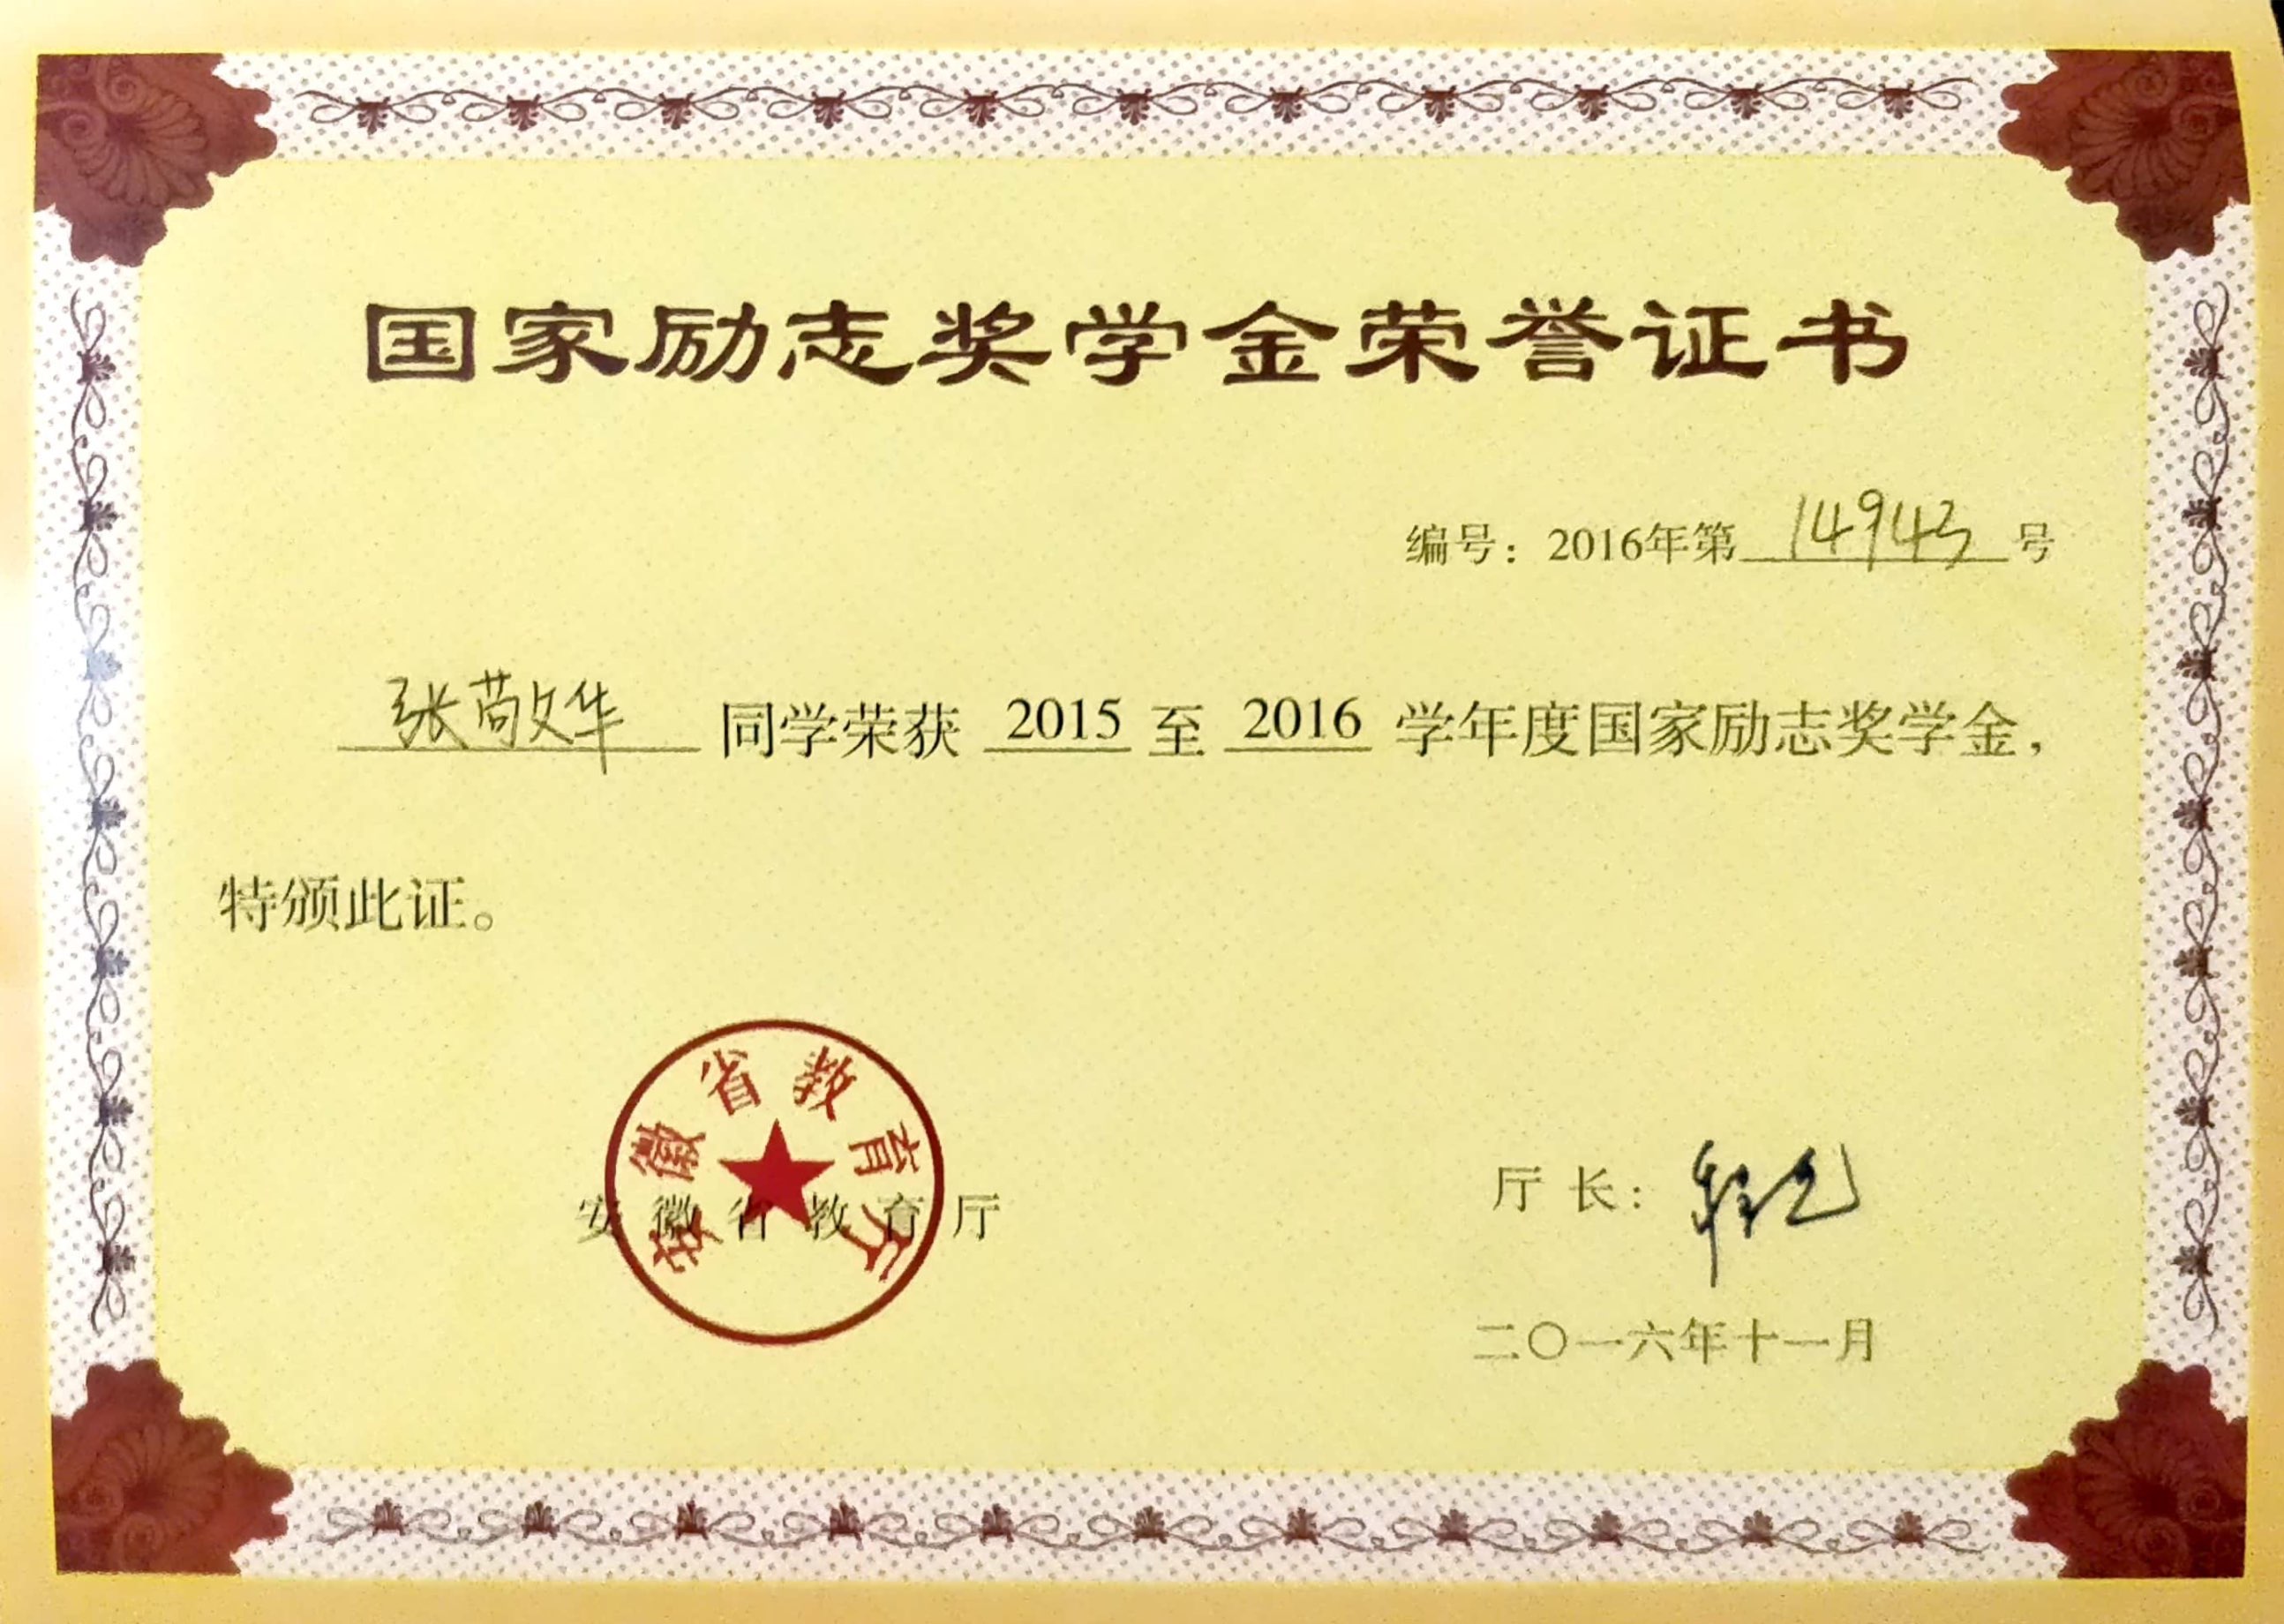 国家励志奖学金荣誉证书
编号：2016年第 14943 号
张敬华 同学荣获 2015 至 2016 学年度国家励志奖学金，
特颁此证。
安徽省教育厅
安徽省教育厅
厅长：程艺
二〇一六年十一月